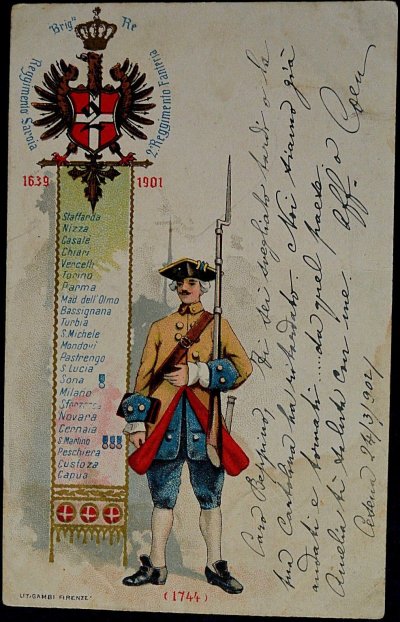 Brig.ª Re
Reggimento Savoia
2.º Reggimento Fanteria
1639 1901
Staffarda
Nizza
Casale
Chiari
Vercelli
Torino
Parma
Mad. dell'Olmo
Bassignana
Turbia
S. Michele
Mondovì
Pastrengo
S. Lucia
Sona
Milano
Sforzesca
Novara
Cernaia
S. Martino
Peschiera
Custoza
Capua
(1744)
LIT. GAMBI FIRENZE
Caro Beppino, Ti sei svegliato tardi o la
mia Cartolina ha ritardato? Noi siamo già
andati e tornati .... da quel paese
Amelia ti saluta con me
Cesena 24/3/902